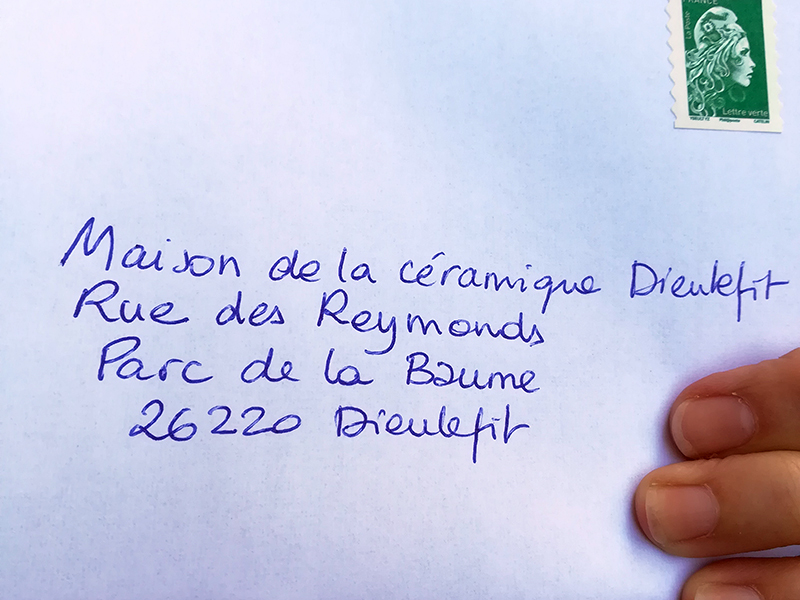 FRANCE
La Poste
Lettre verte
Maison de la céramique Dieulefit
Rue des Reymonds
Parc de la Baume
26220 Dieulefit